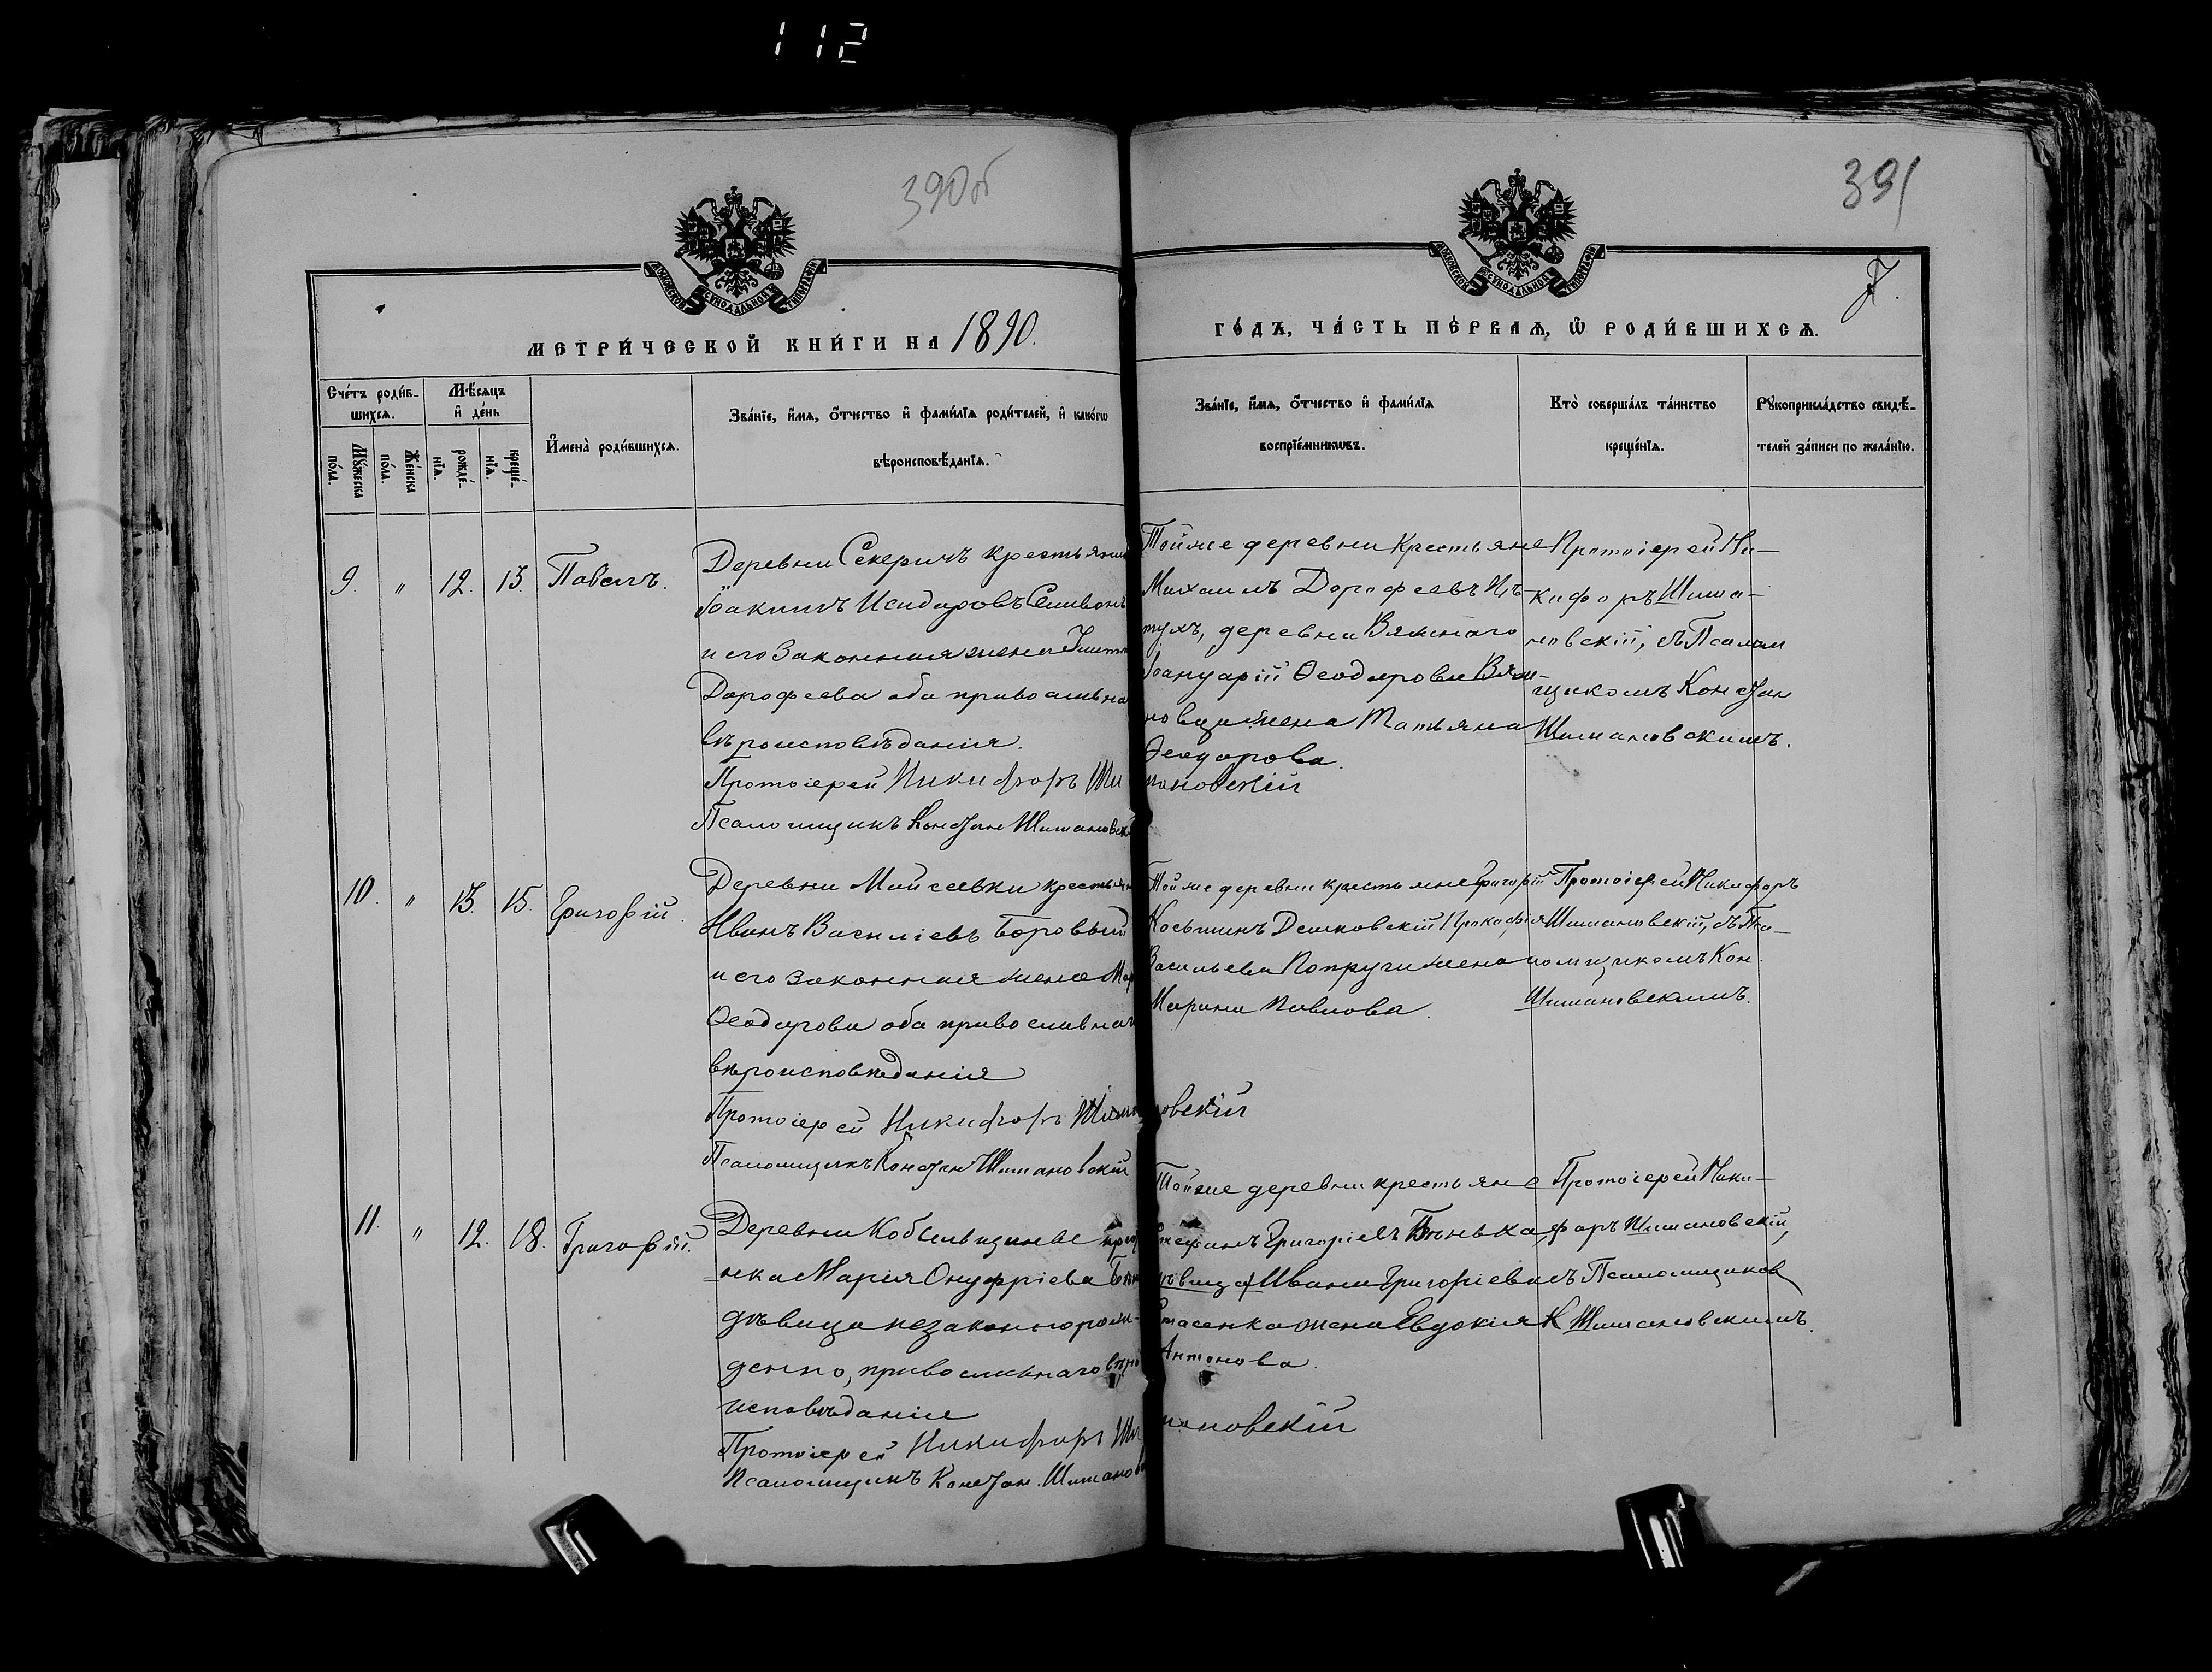 112
390об
391
7.
МОСКОВСКОЙ СУНОДАЛЬНОЙ ТИПОГРАФІИ
МОСКОВСКОЙ СУНОДАЛЬНОЙ ТИПОГРАФІИ
МЕТРИ́ЧЕСКОЙ КНИ́ГИ НА 1890.
ГО́ДЪ, ЧА́СТЬ ПЕ́РВАѦ, Ѿ РОДИ́ВШИХСѦ.
Сче́тъ роди́в-
шихсѧ.
Мꙋ́жеска
по́ла.
Же́нска
по́ла.
Мѣ́сѧцъ
и҆ де́нь
рожде́-
нїѧ.
креще́-
нїѧ.
И҆мена̀ роди́вшихсѧ.
Зва́нїе, и҆́мѧ, ѻ҆́тчество и҆ фами́лїѧ роди́телей, и҆ како́гѡ
вѣроисповѣ́данїѧ.
Зва́нїе, и҆́мѧ, ѻ҆́тчество и҆ фами́лїѧ
воспрїе́мникѡвъ.
Кто̀ соверша́лъ та́инство
креще́нїѧ.
Рꙋкоприкла́дство свидѣ́-
телей за́писи по жела́нїю.
9. " 12. 13. Павелъ.
Деревни Секеричъ крестьянин
Іоакимъ Исидоровъ Селивон
и его законная жена
Дорофеева оба православна
вѣроисповѣданія.
Протоіерей Никифоръ Ши
Псаломщикъ Констан Шимановск
Тойже деревни крестьяне
Михаилъ Дорофеевъ
тухъ, деревни Вяжнаго
Іануарій Ѳеодорова Вяж-
новца жена Татьяна
Ѳеодорова.
мановскій
Протоіерей Ни-
кифоръ Шима-
новскій, съ Псалом
щикомъ Констан
Шимановскимъ.
10. " 13. 15. Григорій.
Деревни Мойсеевки крестьян
Иванъ Василіевъ Боровый
и его законная жена Мар
Ѳеодорова оба православнаг
вѣроисповѣданія
Протоіерей Никифоръ Шиман
Псаломщикъ Констан Шимановскій
Тойже деревни крестьяне Григорій
Косьминъ Дешковскій Прокофія
Васильева Попруги жена
Марина Павлова.
новскій
Протоіерей Никифоръ
Шимановскій, съ Пса-
ломщикомъ Кон.
Шимановскимъ.
11. " 12. 18. Григорій.
Деревни Кобыльщины крестья
нка Марія Онуфріева Бѣнь
дѣвица незаконнорож-
денно, православнаго вѣро
исповѣданія
Протоіерей Никифоръ Ши
Псаломщикъ Констан. Шиманов
Тойже деревни крестьяне
Григоріевъ Бѣнька,
Ивана Григоріева
Стасенка жена Евдокія
Антонова.
мановскій
Протоіерей Ники-
форъ Шимановскій,
съ Псаломщиком
К Шимановскимъ.